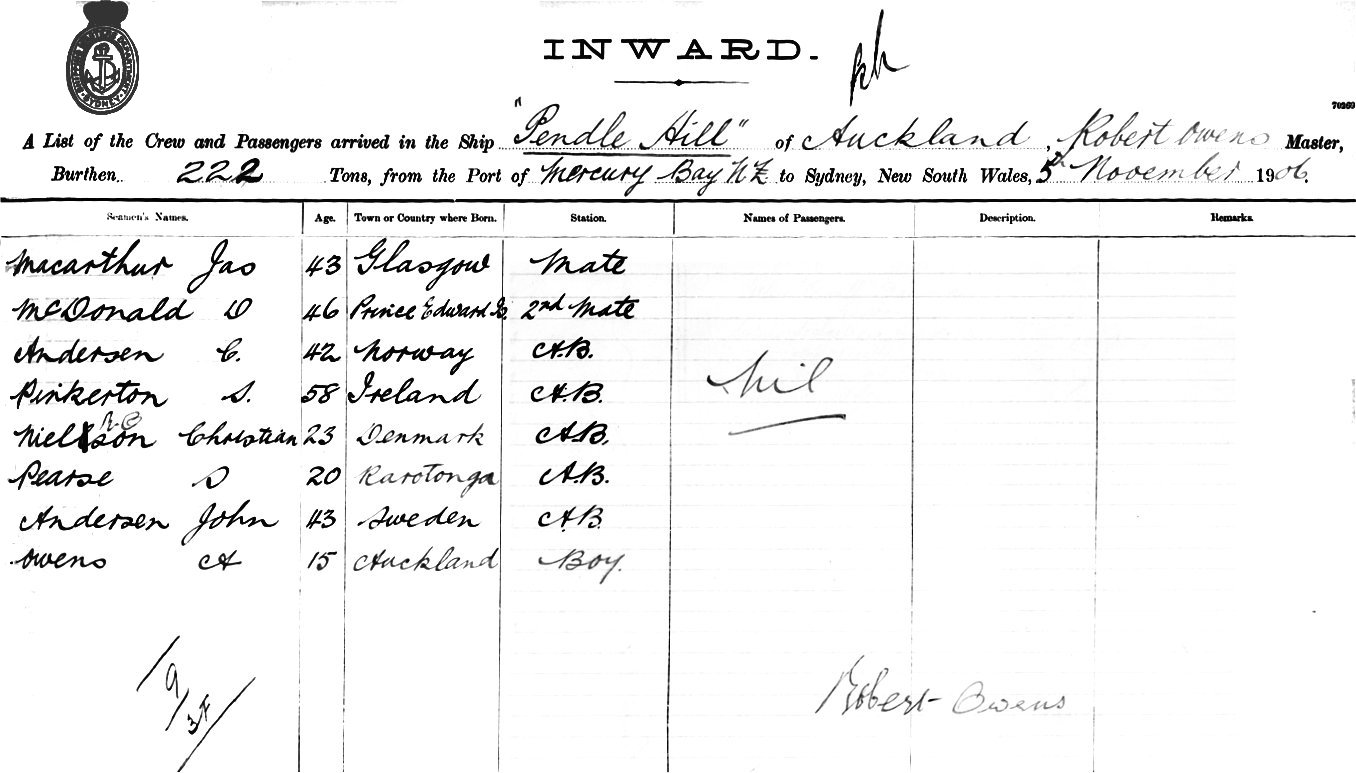 INWARD.
70269
A List of the Crew and Passengers arrived in the Ship "Pendle Hill" of Auckland, Robert Owens Master,
Burthen 222 Tons, from the Port of Mercury Bay NZ to Sydney, New South Wales, 5th November 1906.
Seamen's Names. Age. Town or Country where Born. Station. Names of Passengers. Description. Remarks.
Macarthur Jas 43 Glasgow Mate
McDonald D 46 Prince Edward Is. 2nd Mate
Andersen C. 42 Norway A.B.
Pinkerton S. 58 Ireland A.B.
Nil
Nielson Christian 23 Denmark A.B.
Pearse S 20 Rarotonga A.B.
Andersen John 43 Sweden A.B.
Owens A 15 Auckland Boy.
Robert Owens